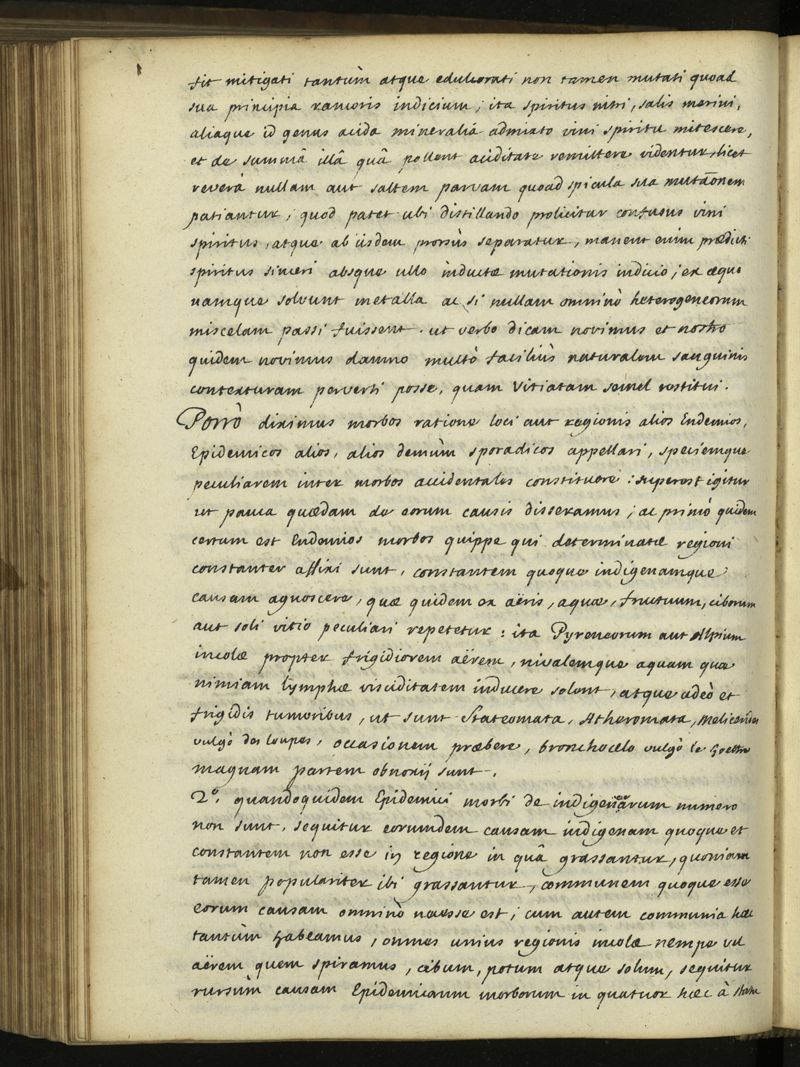 fit mitigati tantùm atque edulcorati non tamen mutati quoad
sua principia rancoris indicium; ita spiritus nitri, salis marini,
aliaque id genus acida mineralia admixto vini spiritu mitescere,
et de summâ illâ quâ pollent aciditate remittere videntur, licet
reverâ nullam aut saltem parvam quoad spicula sua mutãonem
patiantur; quod patet ubi distillando prolicitur confusus vini
spiritus, atque ab iisdem prorsùs separatur, manent enim prædicti
spiritus sinceri absque ullo inductæ mutationis indicio; ex æquo
namque solvunt metalla ac si nullam omninò heterogeneorum
miscelam passi fuissent. ut verbo dicam novimus et nostro
quidem novimus damno multò faciliùs naturalem sanguinis
contexturam perverti posse, quam vitiatam semel restitui.
Porrò diximus morbos ratione loci aut regionis alios Endemios,
Epidemicos alios, alios demùm sporadicos appellari, speciemque
peculiarem inter morbos accidentales constituere: superest igitur
ut pauca quædam de eorum causis disseramus; ac primò quidem
certum est Endemios morbos quippe qui determinatæ regioni
constanter affixi sunt, constantem quoque indigenamque
causam agnoscere, quæ quidem ex aëris, aquæ, fructuum, ciborum
aut soli vitio peculiari repetetur: ita Pyreneorum aut Alpium
incolæ propter frigidiorem aërem, nivalemque aquam quæ
nimiam lymphæ visciditatem inducere solent, atque adeò et
frigidis tumoribus, ut sunt Steatomata, Atheromata, Melicerides
vulgò des Loupes, occasionem præbere, bronchocelo vulgò le Goettre
magnam partem obnoxij sunt.
2º. quandoquidem Epidemici morbi de indigenarum numero
non sunt, sequitur eorumdem causam indigenam quoque et
constantem non esse in regione in quâ grassantur, quoniam
tamen populariter ibi grassantur, communem quoque esse
eorum causam omninò necesse est; cum autem communia hæc
tantùm habeamus, omnes unius regionis incolæ nempe vel
aërem quem spiramus, cibum, potum atque solum, sequitur
rursùm causam Epidemicorum morborum in quatuor hæc à